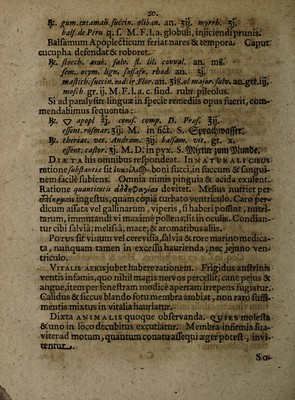 20.
℞. gum. tacamah. succin. oliban. an. ʒij. myrrh. ʒj.
bals. de Peru q. s. M. F. l. a. globuli, injiciendi prunis.
Balsamum Apoplecticum feriat nares & tempora. Caput
cucupha defendat & roboret.
℞. stoech. arab. salv. fl. lil. conval. an. m
sem. cepm. lign. sassafr. rhod. an. ʒj.
mastich. succin. nuc. ir. Flor. an. ʒiß. ol major. salv. an. gtt. iij,
mosch. gr. ij. M. F. l. a. c. sind. rubr. pileolus.
Si ad paralysin linguæ in specie remediis opus fuerit, com-
mendabimus sequentia:
apopl. ceras. comp. D. Præf. ℥iij.
essent. rosmar. ʒij. M. in fict. S. Sprachwasser.
℞. theriac. ver. Androm. ʒij. balsam. vit. gt. x.
essent. castor. ʒj. M. D. in pyx. S. Mixtur zum Munde.
DIÆTA his omnibus respondeat. In NATURALI CIBUS
ratione substantiæ sit boni succi, in succum & sangui-
nem facile subiens. Omnia nimis pinguia & acida exulent.
Ratione quantitatis devitet. Melius nutriet per-
ingestus, quam copia turbato ventriculo. Caro per-
dicum assata vel gallinarum, viperis, si haberi possent, nutri-
tarum, immutandi vi maxime pollens, sit in oculis. Condian-
tur cibi salvia, melissa, mace, & aromatibus aliis.
POTUS sit vinum vel cerevisia, salvia & rore marino medica-
ta, nunquam tamen in excessu haurienda, nec jejuno ven-
triculo.
VITALIS AERIS jubet habere rationem. Frigidus austrinis
ventis infamis, quo nihil magis nervos percellit, cane pejus &
angue, item per fenestram modice apertam irrepens fugiatur.
Calidus & siccus blando fotu membra ambiat, non raro suffi-
mentis mixtus in vitalia hauriatur.
DIÆTA ANIMALIS quoque observanda. QUIES molesta
& uno in loco decubitus excutiatur. Membra infirmia sua-
viter ad motum, quantum conatu assequi æger potest, invi-
tentur.
So-